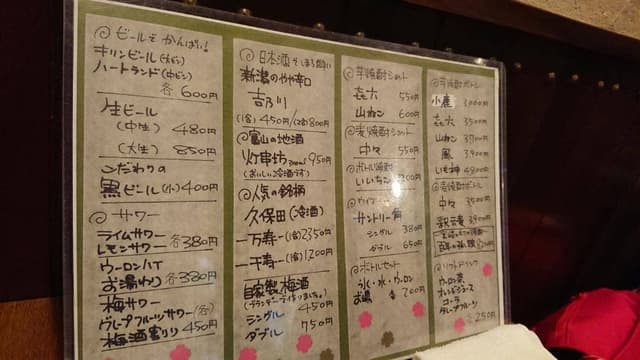 ◎ビールで かんぱい!
キリンビール(大ビン)
ハートランド(中ビン)
各600円
生ビール
(中生) 480円
(大生) 850円
こだわりの
黒ビール(小)400円
◎サワー
ライムサワー
レモンサワー 各380円
ウーロンハイ
お湯わり 各380円
梅サワー
グレープフルーツサワー(各)
梅酒割り 450円
◎日本酒
新潟のやや辛口
吉乃川
(1合)450円/(2合)800円
◎富山の地酒
灯串坊 950円
(おいしい冷酒です)
◎人気の銘柄
久保田(冷酒)
万寿(1合)2350円
千寿(1合)1200円
自家製梅酒
シングル 450円
ダブル 750円
◎芋焼酎ショット
㐂六 550円
山ねこ 600円
◎麦焼酎ショット
中々 550円
◎ボトル焼酎
いいちこ
サントリー角
シングル 380円
ダブル 650円
◎ボトルセット
氷・水・ウーロン
お湯 各200円
◎芋焼酎ボトル
小鹿 3000円
㐂六 3500円
山ねこ 3700円
3900円
いも神 4800円
◎麦焼酎ボトル
中々 3500円
3900円
百年の孤独
◎ソフトドリンク
ウーロン茶
オレンジジュース
コーラ
グレープフルーツ
各250円